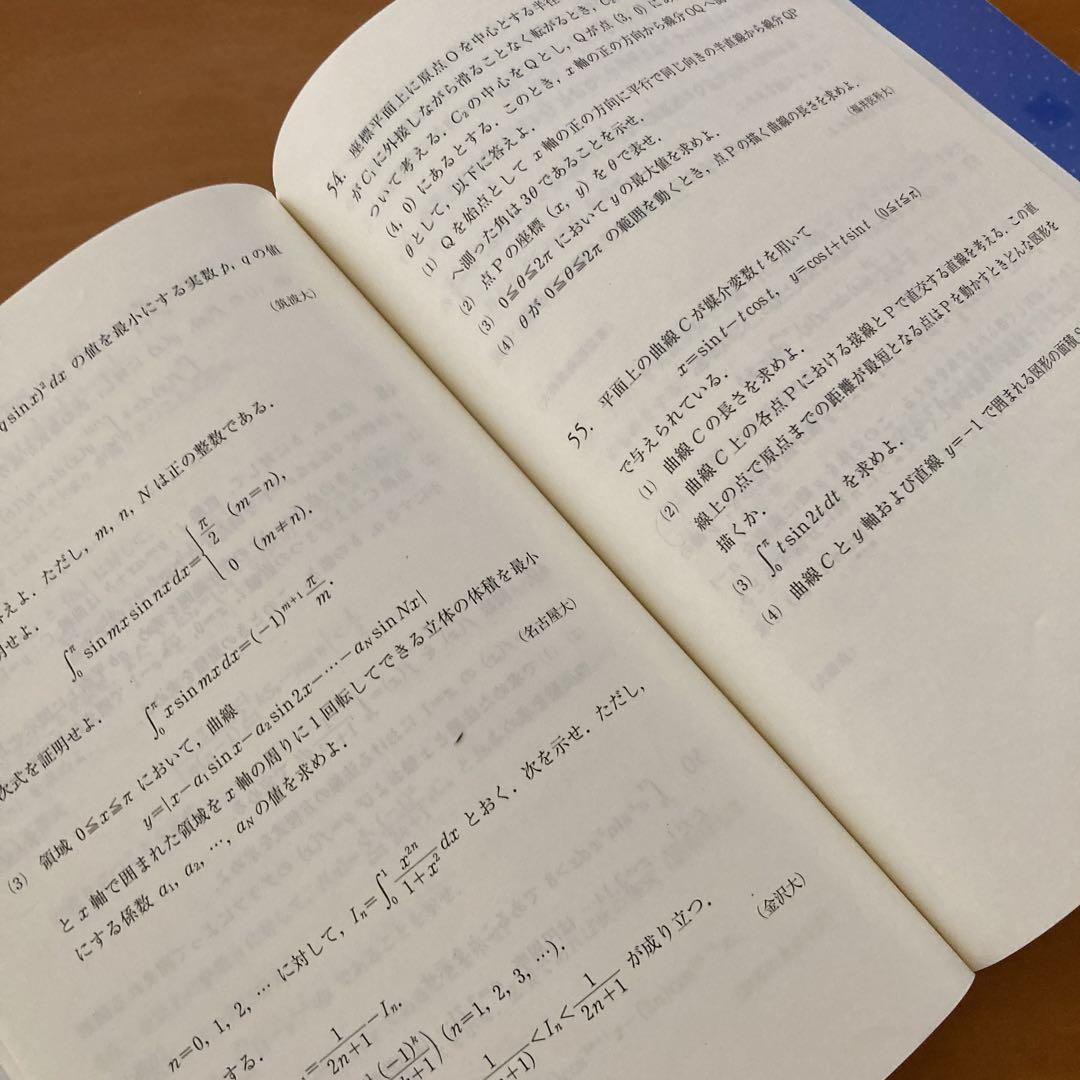 ysinx)² dx の値を最小にする実数 p, q の値
(筑波大)
えよ．ただし，m, n, N は正の整数である．
明せよ．
∫₀^π sin mx sin nx dx = { π/2 (m=n), 0 (m≠n).
次式を証明せよ．
∫₀^π x sin mx dx = (−1)^{m+1} π/m.
(3) 領域 0≦x≦π において，曲線
y=|x−a₁sin x−a₂sin 2x−…−a_N sin Nx|
と x 軸で囲まれた領域を x 軸の周りに1回転してできる立体の体積を最小
にする係数 a₁, a₂, …, a_N の値を求めよ．
(名古屋大)
n=0, 1, 2, … に対して，I_n=∫₀¹ x^{2n}/(1+x²) dx とおく．次を示せ．ただし，
する．
=1/(2n+1)−I_n.
(−1)^k (n=1, 2, 3, …).
<I_n<1/(2n+1) が成り立つ．
(金沢大)
54. 座標平面上に原点 O を中心とする半径
が C₁ に外接しながら滑ることなく転がるとき，C₂
ついて考える．C₂ の中心を Q とし，Q が点 (3, 0) に
(4, 0) にあるとする．このとき，x 軸の正の方向から線分 OQ へ
θ として，以下に答えよ．
(1) Q を始点として x 軸の正の方向に平行で同じ向きの半直線から線分 QP
へ測った角は 3θ であることを示せ．
(2) 点 P の座標 (x, y) を θ で表せ．
(3) 0≦θ≦2π において y の最大値を求めよ．
(4) θ が 0≦θ≦2π の範囲を動くとき，点 P の描く曲線の長さを求めよ．
(福井医科大)
55. 平面上の曲線 C が媒介変数 t を用いて
x=sin t−t cos t, y=cos t+t sin t (0≦t≦π)
で与えられている．
(1) 曲線 C の長さを求めよ．
(2) 曲線 C 上の各点 P における接線と P で直交する直線を考える．この直
線上の点で原点までの距離が最短となる点は P を動かすときどんな図形を
描くか．
(3) ∫₀^π t sin 2t dt を求めよ．
(4) 曲線 C と y 軸および直線 y=−1 で囲まれる図形の面積